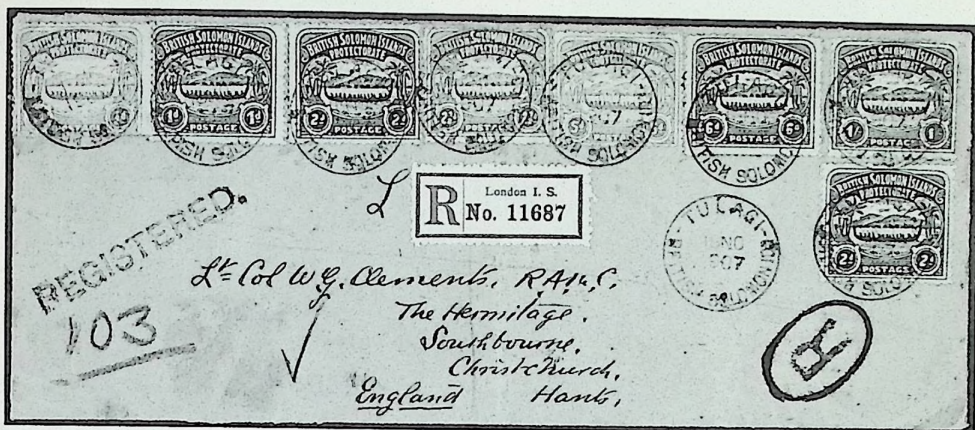 BRITISH SOLOMON ISLANDS PROTECTORATE
BRITISH SOLOMON ISLANDS PROTECTORATE 1d 1d POSTAGE
BRITISH SOLOMON ISLANDS PROTECTORATE 2d 2d POSTAGE
BRITISH SOLOMON ISLANDS PROTECTORATE 2½ 2½ POSTAGE
BRITISH SOLOMON ISLANDS PROTECTORATE POSTAGE
BRITISH SOLOMON ISLANDS PROTECTORATE 6d 6d POSTAGE
BRITISH SOLOMON ISLANDS PROTECTORATE 1/- 1/- POSTAGE
BRITISH SOLOMON ISLANDS PROTECTORATE 2d 2d POSTAGE
L
R London I. S.
No. 11687
TULAGI BRITISH SOLOMON IS
NO
907
REGISTERED.
103
Lt Col W. G. Clements, R.A.M.C.
The Hermitage.
Southbourne,
Christchurch,
England Hants,
R